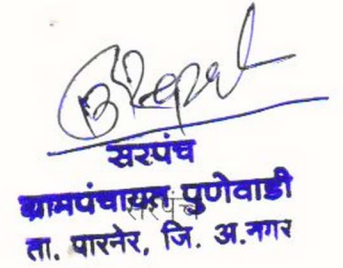 सरपंच
ग्रामपंचायत पुणेवाडी
सरपंच
ता. पारनेर, जि. अ.नगर